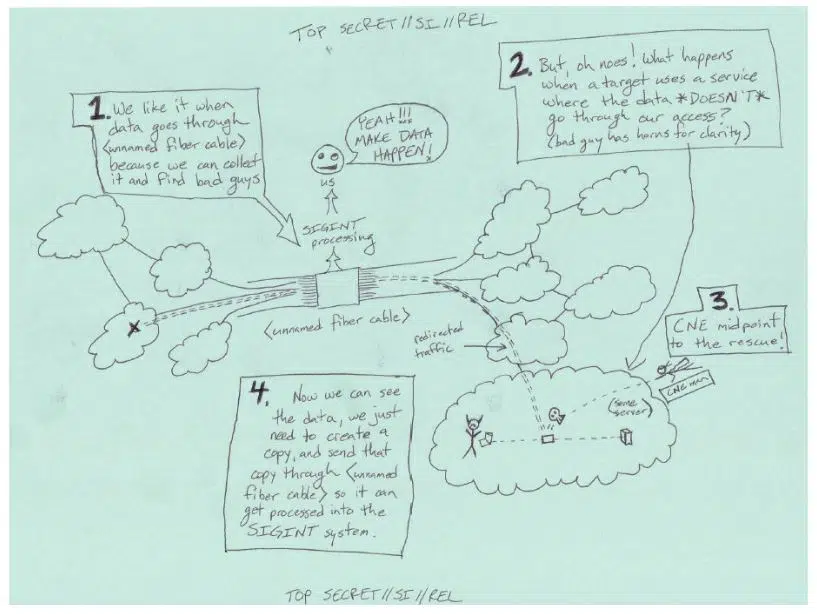 TOP SECRET//SI//REL
1. We like it when
data goes through
<unnamed fiber cable>
because we can collect
it and find bad guys
YEAH!!!
MAKE DATA
HAPPEN!
us
SIGINT
processing
2. But, oh noes! What happens
when a target uses a service
where the data *DOESN'T*
go through our access?
(bad guy has horns for clarity)
<unnamed fiber cable>
redirected
traffic
3.
CNE midpoint
to the rescue!
CNE man
(some
server)
4. Now we can see
the data, we just
need to create a
copy, and send that
copy through <unnamed
fiber cable> so it can
get processed into the
SIGINT system.
TOP SECRET//SI//REL